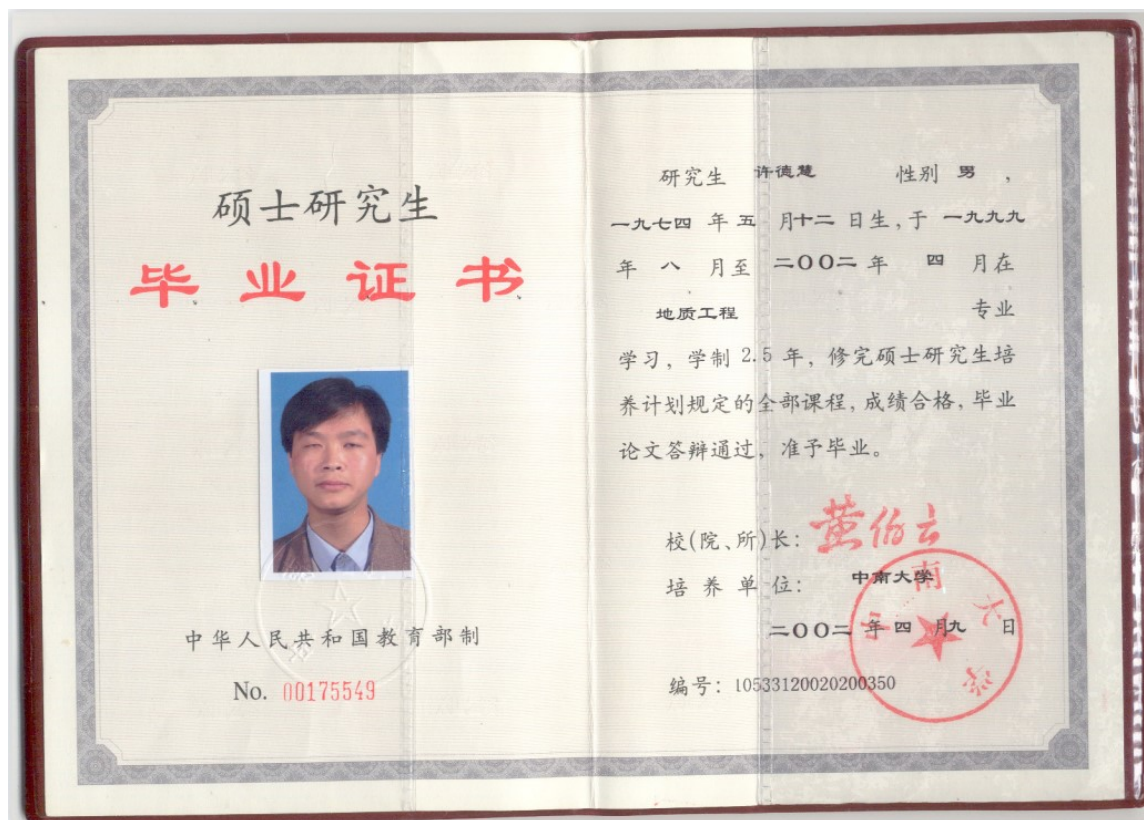 硕士研究生
毕业证书
中华人民共和国教育部制
No. 00175549
研究生 许德慧 性别 男，
一九七四 年 五 月十二 日生，于 一九九九
年 八 月至 二〇〇二 年 四 月在
地质工程 专业
学习，学制 2.5 年，修完硕士研究生培
养计划规定的全部课程，成绩合格，毕业
论文答辩通过，准予毕业。
校(院、所)长：黄伯云
培养单位：中南大学
二〇〇二 年 四 月九 日
编号：10533120020200350
中南大学